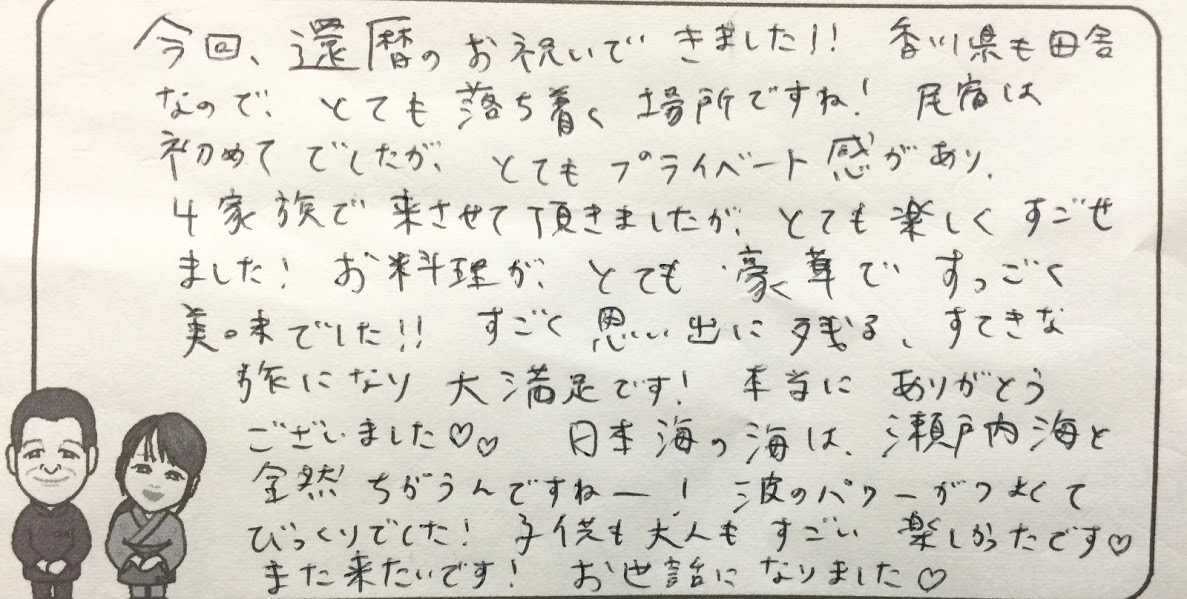 今回、還暦のお祝いできました!! 香川県も田舎
なので、とても落ち着く場所ですね! 民宿は
初めてでしたが、とてもプライベート感があり、
4家族で来させて頂きましたが、とても楽しくすごせ
ました! お料理が、とても豪華で、すっごく
美味でした!! すごく思い出に残る、すてきな
旅になり大満足です! 本当にありがとう
ございました♡♡ 日本海の海は、瀬戸内海と
全然ちがうんですねー! 波のパワーがつよくて
びっくりでした! 子供も大人もすごい楽しかったです♡
また来たいです! お世話になりました♡